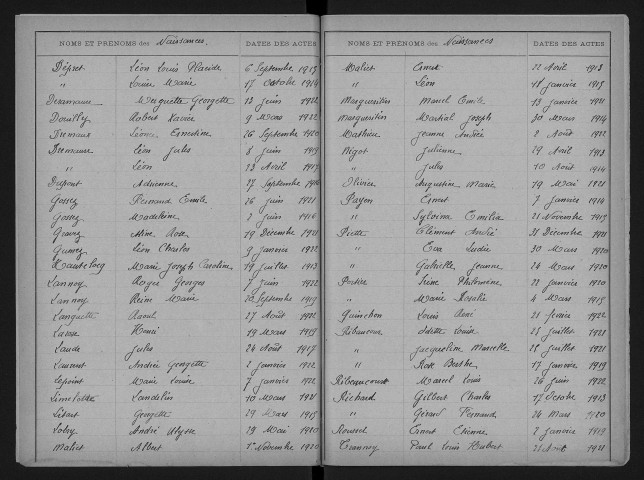 NOMS ET PRÉNOMS des Naissances. DATES DES ACTES
Dépret Léon Louis Placide 6 Septembre 1915
" Louise Marie 17 Octobre 1914
Desramaux Huguette Georgette 13 Juin 1922
Douilly Robert Xavier 9 Mars 1922
Dremaux Léona Ernestine 26 Septembre 1920
Dremaux Léon Jules 8 Juin 1919
" Léon 23 Avril 1919
Dupont Adrienne 27 Septembre 1916
Gossez Fernand Emile 26 Juin 1921
Gossez Madeleine 2 Juin 1916
Gravez Aline Rose 19 Décembre 1921
Léon Charles 9 Janvier 1922
Hautecocq Marie Joseph Caroline 19 Juillet 1913
Lannoy Roger Georges 7 Juin 1922
Lannoy Reine Marie 20 Septembre 1919
Languette Raoul 27 Août 1921
Henri 19 Mars 1919
Laude Jules 24 Août 1917
Laurent André Georgette 2 Janvier 1922
Lepoint Marie Louise 7 Janvier 1922
Landelin 10 Mars 1921
Libert Georgette 29 Mars 1915
Lobry André Ulysse 19 Mai 1920
Maliet Albert 1er Novembre 1920
NOMS ET PRÉNOMS des Naissances DATES DES ACTES
Maliet Ernest 22 Avril 1913
" Léon 18 Janvier 1915
Masquestilin Marcel Emile 13 Janvier 1921
Masquestilin Martial Joseph 30 Mars 1914
Mathieu Jeanne Andrée 2 Août 1922
Nigot Julienne 29 Avril 1913
" Jules 10 Août 1914
Olivier Augustine Marie 19 Mai 1921
Payen Ernest 7 Janvier 1914
" Sylvina Emilia 21 Novembre 1919
Piette Clément André 31 Décembre 1921
" Eva Lucie 30 Mars 1920
" Gabrielle Jeanne 26 Mars 1920
Portier Irène Philomène 22 Janvier 1920
" Marie Rosalie 4 Mars 1915
Quinchon Louis René 21 Février 1922
Ribaucour Odette Louise 25 Juillet 1921
" Jacqueline Marcelle 25 Juillet 1921
" Rose Berthe 17 Janvier 1919
Ribeaucourt Marcel Louis 26 Juin 1922
Richard Gilbert Charles 17 Octobre 1913
" Gérard Fernand 24 Mars 1920
Roussel Ernest Etienne 2 Janvier 1919
Trannoy Paul Louis Hubert 21 Août 1921